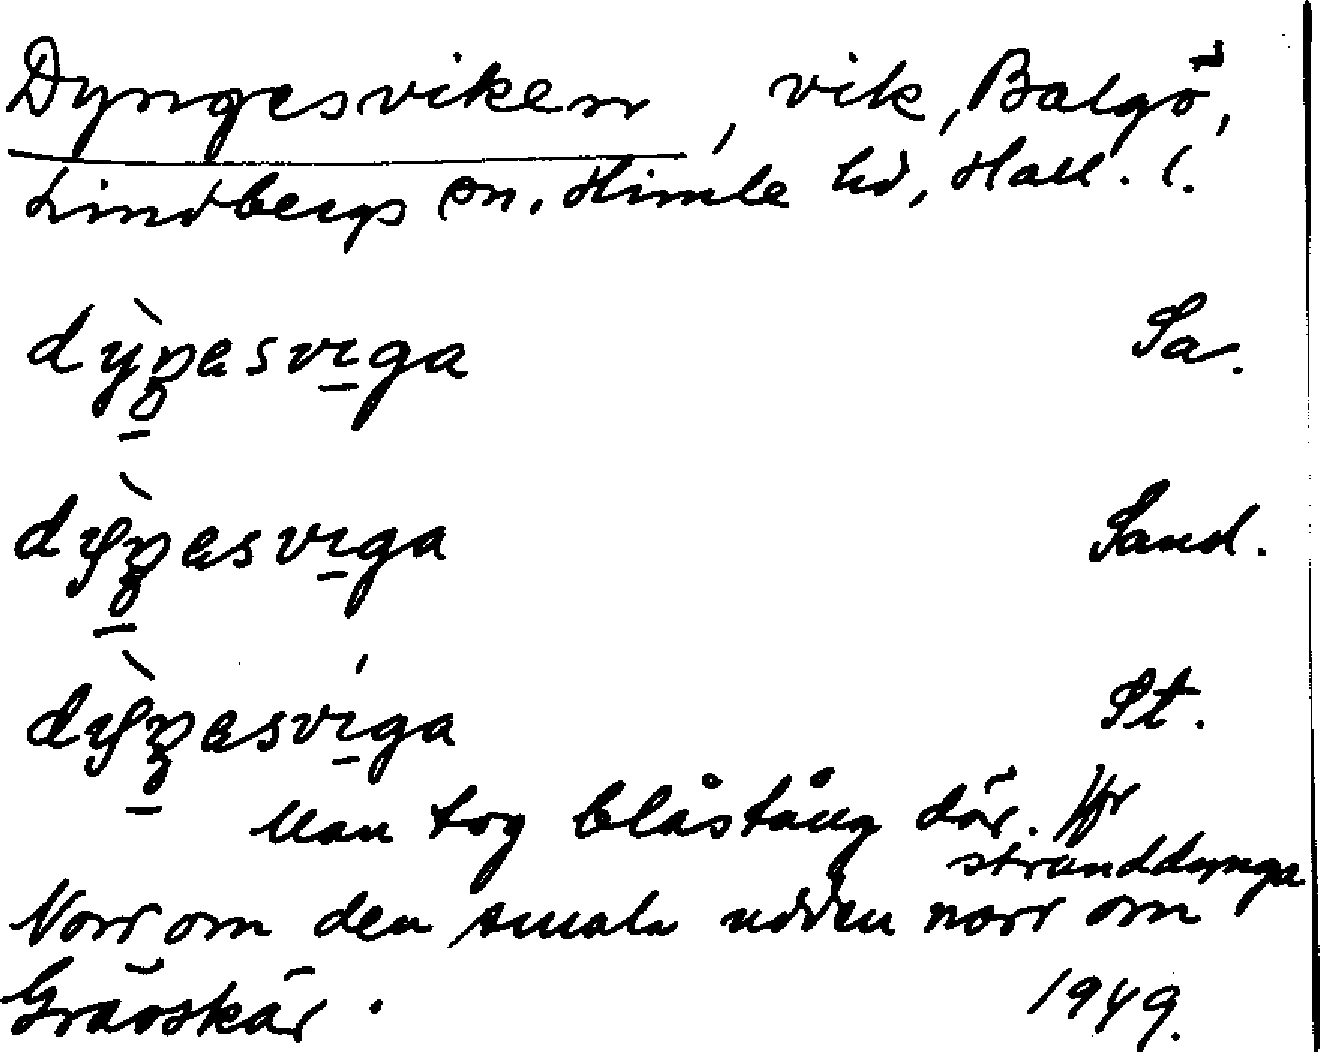 Dyngesviken, vik, Balgö,
Lindbergs sn. Himle hd, Hall. l.
dỳŋesviga Sa.
dỳŋesviga Sand.
dỳŋesvíga St.
Man tog blåstång där. Jfr
stranddynga
Norr om den smala udden norr om
Gråoskär. 1949.